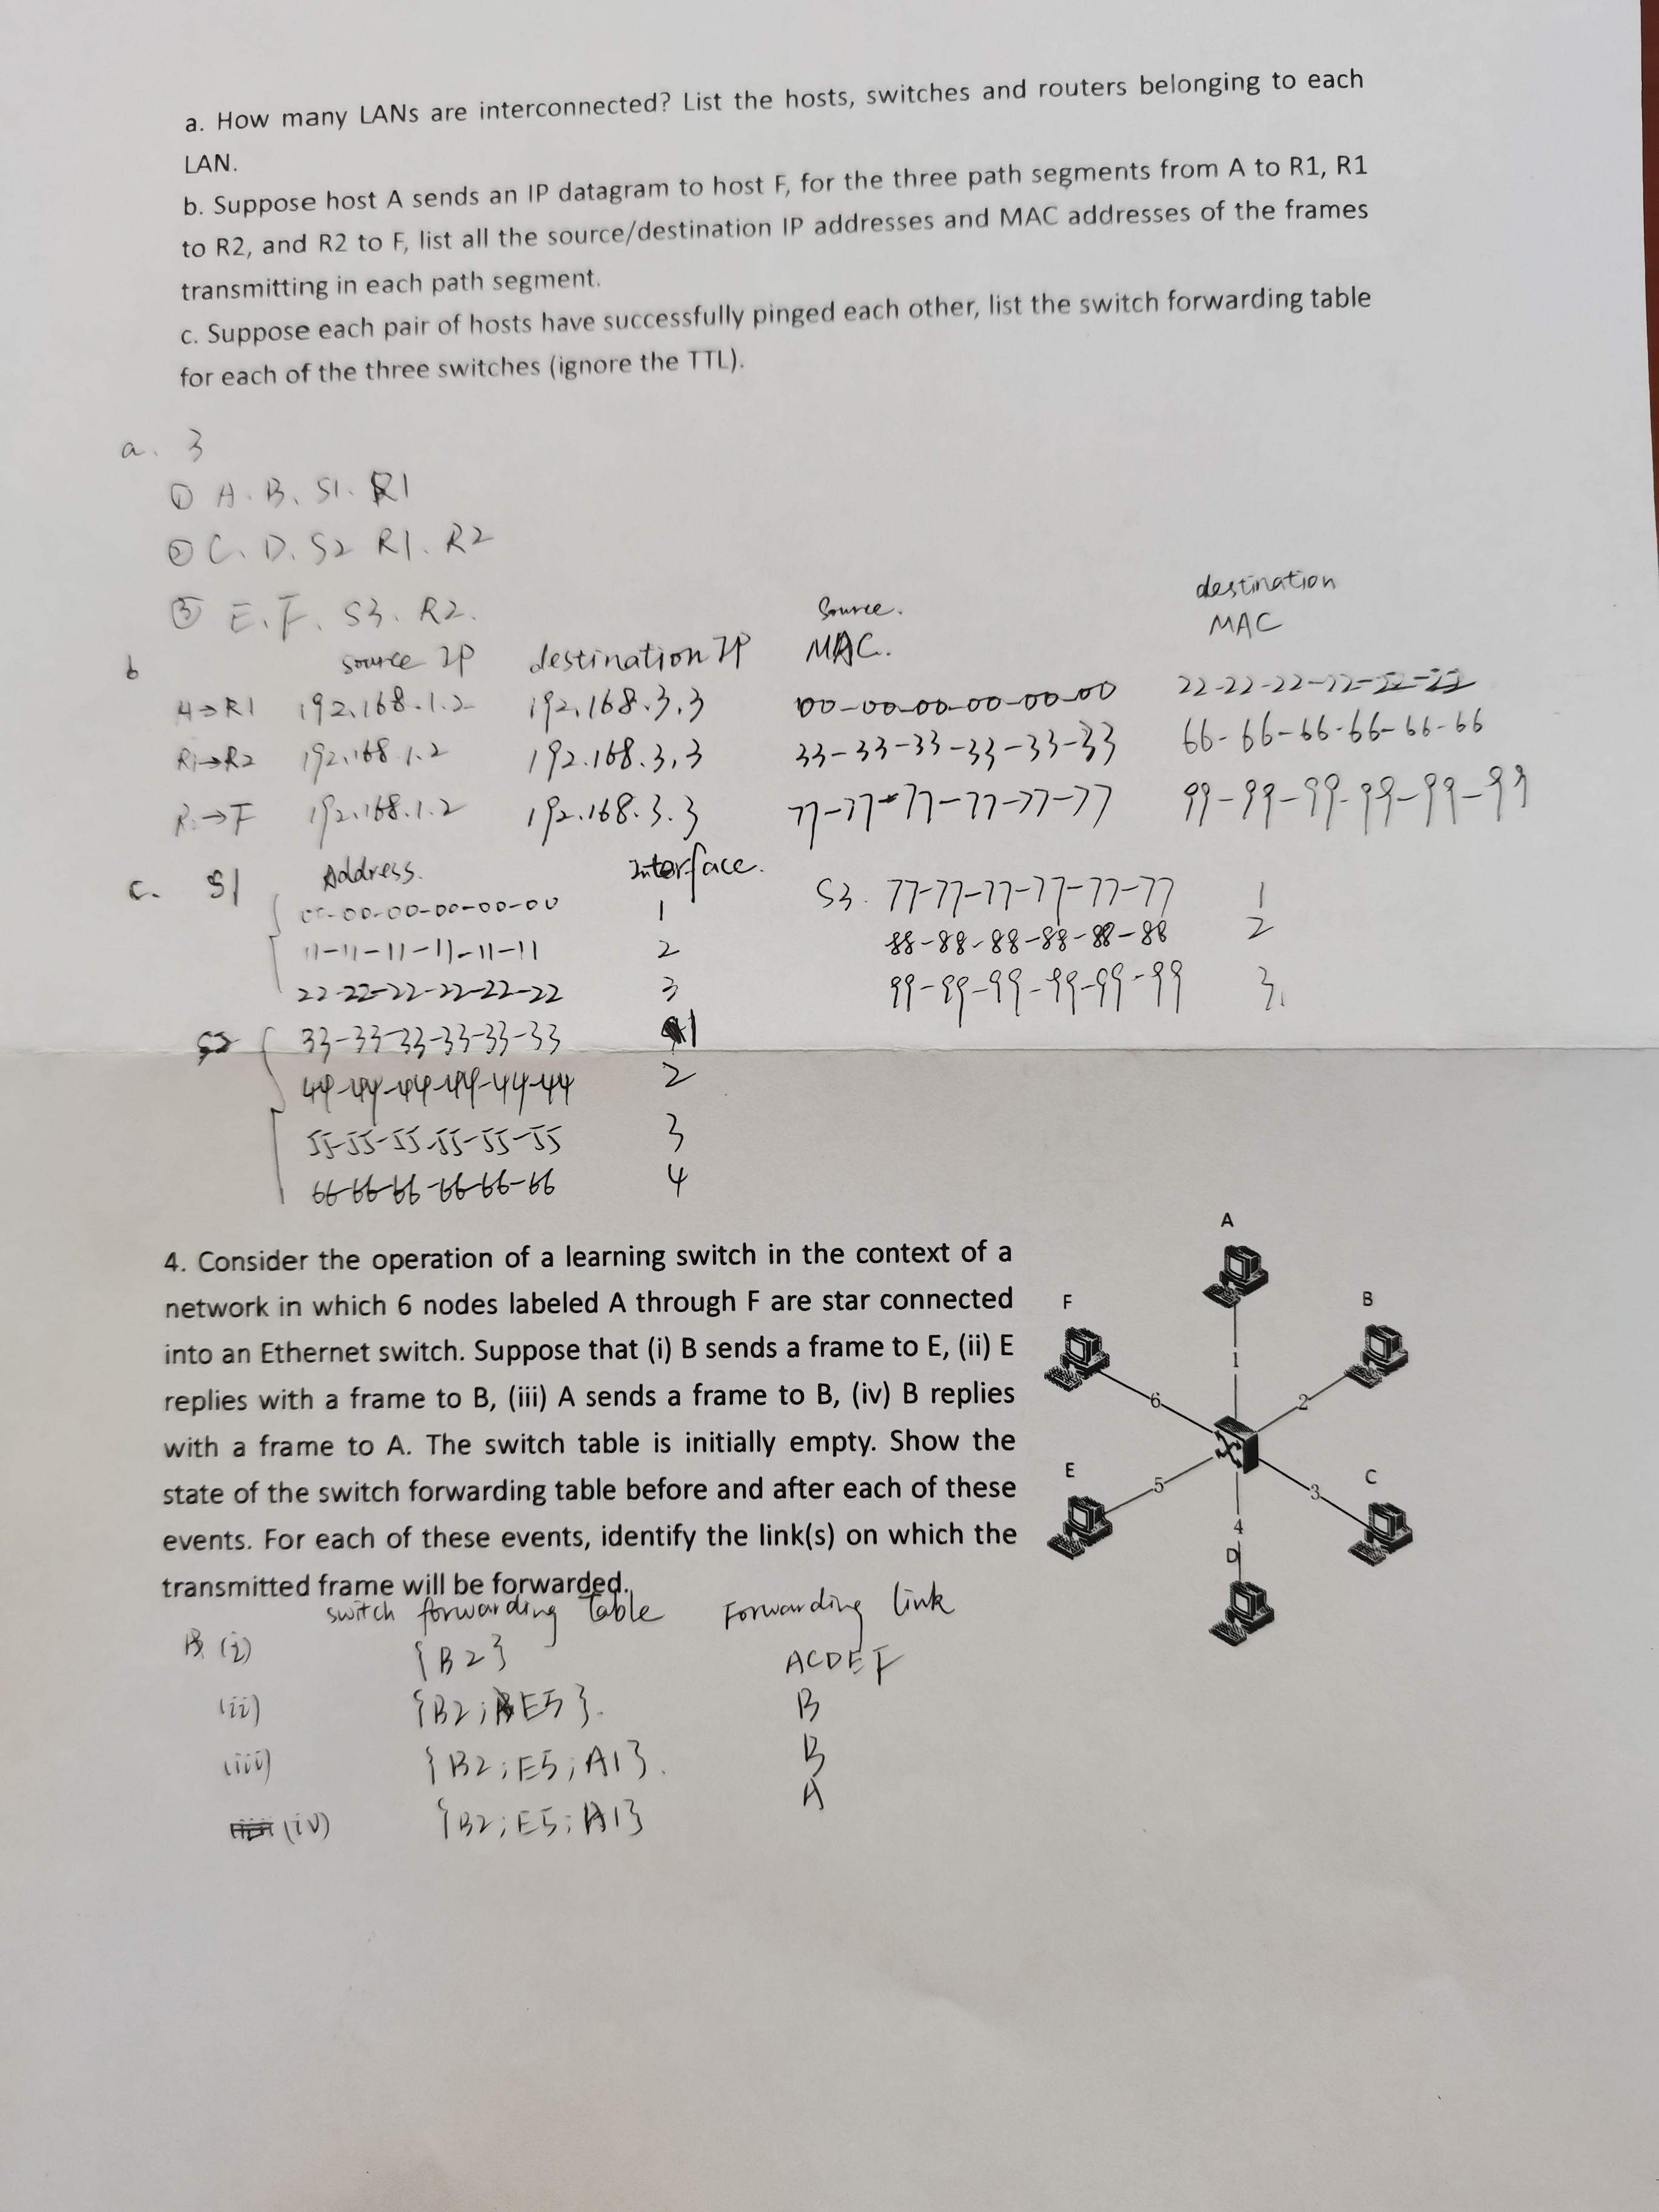 a. How many LANs are interconnected? List the hosts, switches and routers belonging to each
LAN.
b. Suppose host A sends an IP datagram to host F, for the three path segments from A to R1, R1
to R2, and R2 to F, list all the source/destination IP addresses and MAC addresses of the frames
transmitting in each path segment.
c. Suppose each pair of hosts have successfully pinged each other, list the switch forwarding table
for each of the three switches (ignore the TTL).
a. 3
① A. B. S1. R1
② C. D. S2 R1. R2
③ E. F. S3. R2.
b source IP destination IP source. MAC. destination MAC
A→R1 192.168.1.2 192.168.3.3 00-00-00-00-00-00 22-22-22-22-22-22
R1→R2 192.168.1.2 192.168.3.3 33-33-33-33-33-33 66-66-66-66-66-66
R2→F 192.168.1.2 192.168.3.3 77-77-77-77-77-77 99-99-99-99-99-99
c. S1 Address. Interface.
00-00-00-00-00-00 1
11-11-11-11-11-11 2
22-22-22-22-22-22 3
S2 33-33-33-33-33-33 1
44-44-44-44-44-44 2
55-55-55-55-55-55 3
66-66-66-66-66-66 4
S3. 77-77-77-77-77-77 1
88-88-88-88-88-88 2
99-99-99-99-99-99 3.
4. Consider the operation of a learning switch in the context of a
network in which 6 nodes labeled A through F are star connected
into an Ethernet switch. Suppose that (i) B sends a frame to E, (ii) E
replies with a frame to B, (iii) A sends a frame to B, (iv) B replies
with a frame to A. The switch table is initially empty. Show the
state of the switch forwarding table before and after each of these
events. For each of these events, identify the link(s) on which the
transmitted frame will be forwarded.
A
F
B
1
6
2
E
C
5
3
4
D
switch forwarding table Forwarding link
(i) {B2} ACDEF
(ii) {B2; E5}. B
(iii) {B2; E5; A1}. B
(iv) {B2; E5; A1} A